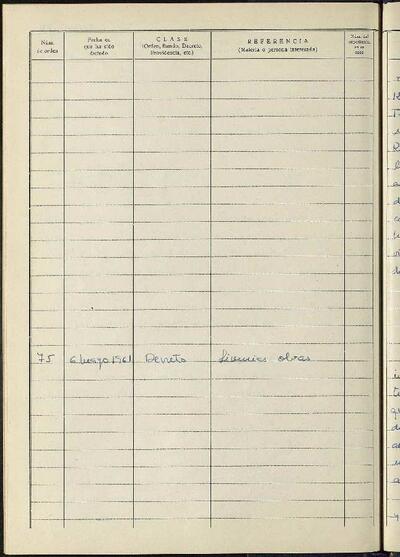 Núm.
de orden
Fecha en
que ha sido
dictado
CLASE
(Orden, Bando, Decreto,
Providencia, etc.)
REFERENCIA
(Materia o persona interesada)
Núm. del
75 6 mayo 1961 Decreto Licencias obras